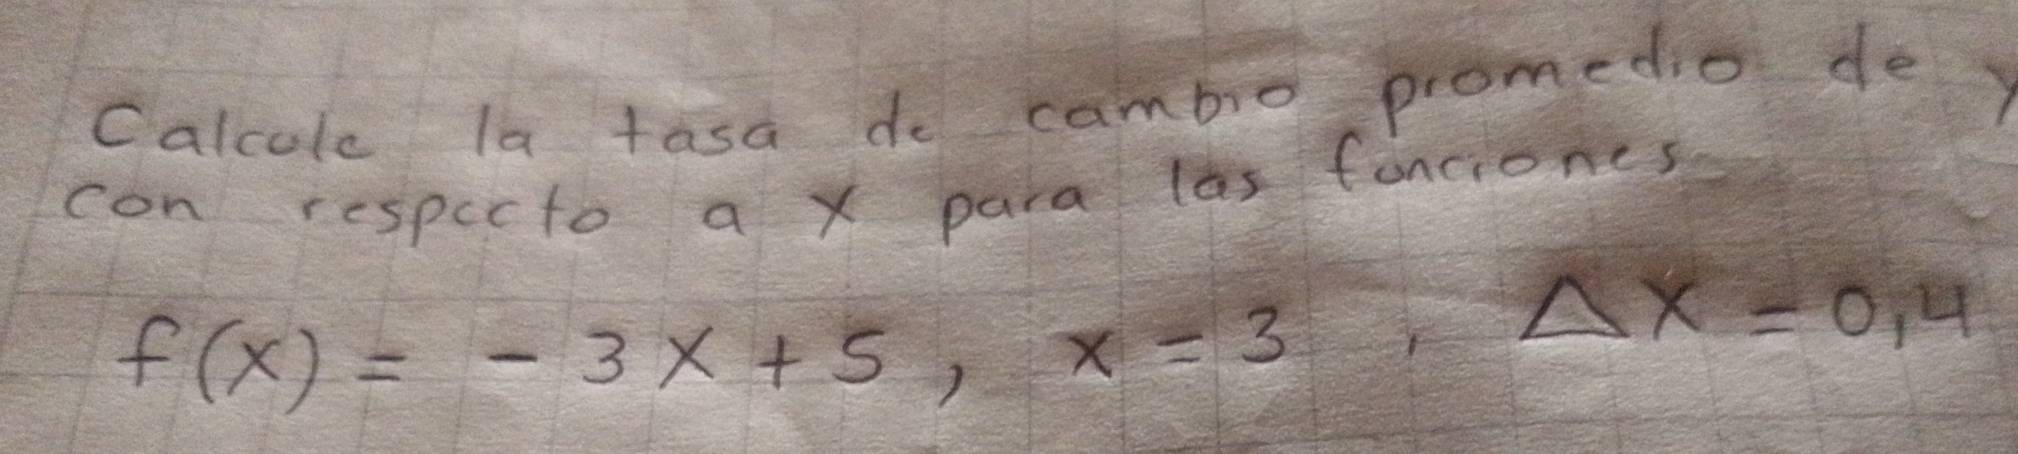 Calcule la tasa de cambio promedio de y
con respecto a x para las funciones
f(x) = - 3x + 5, x = 3, Δx = 0,4